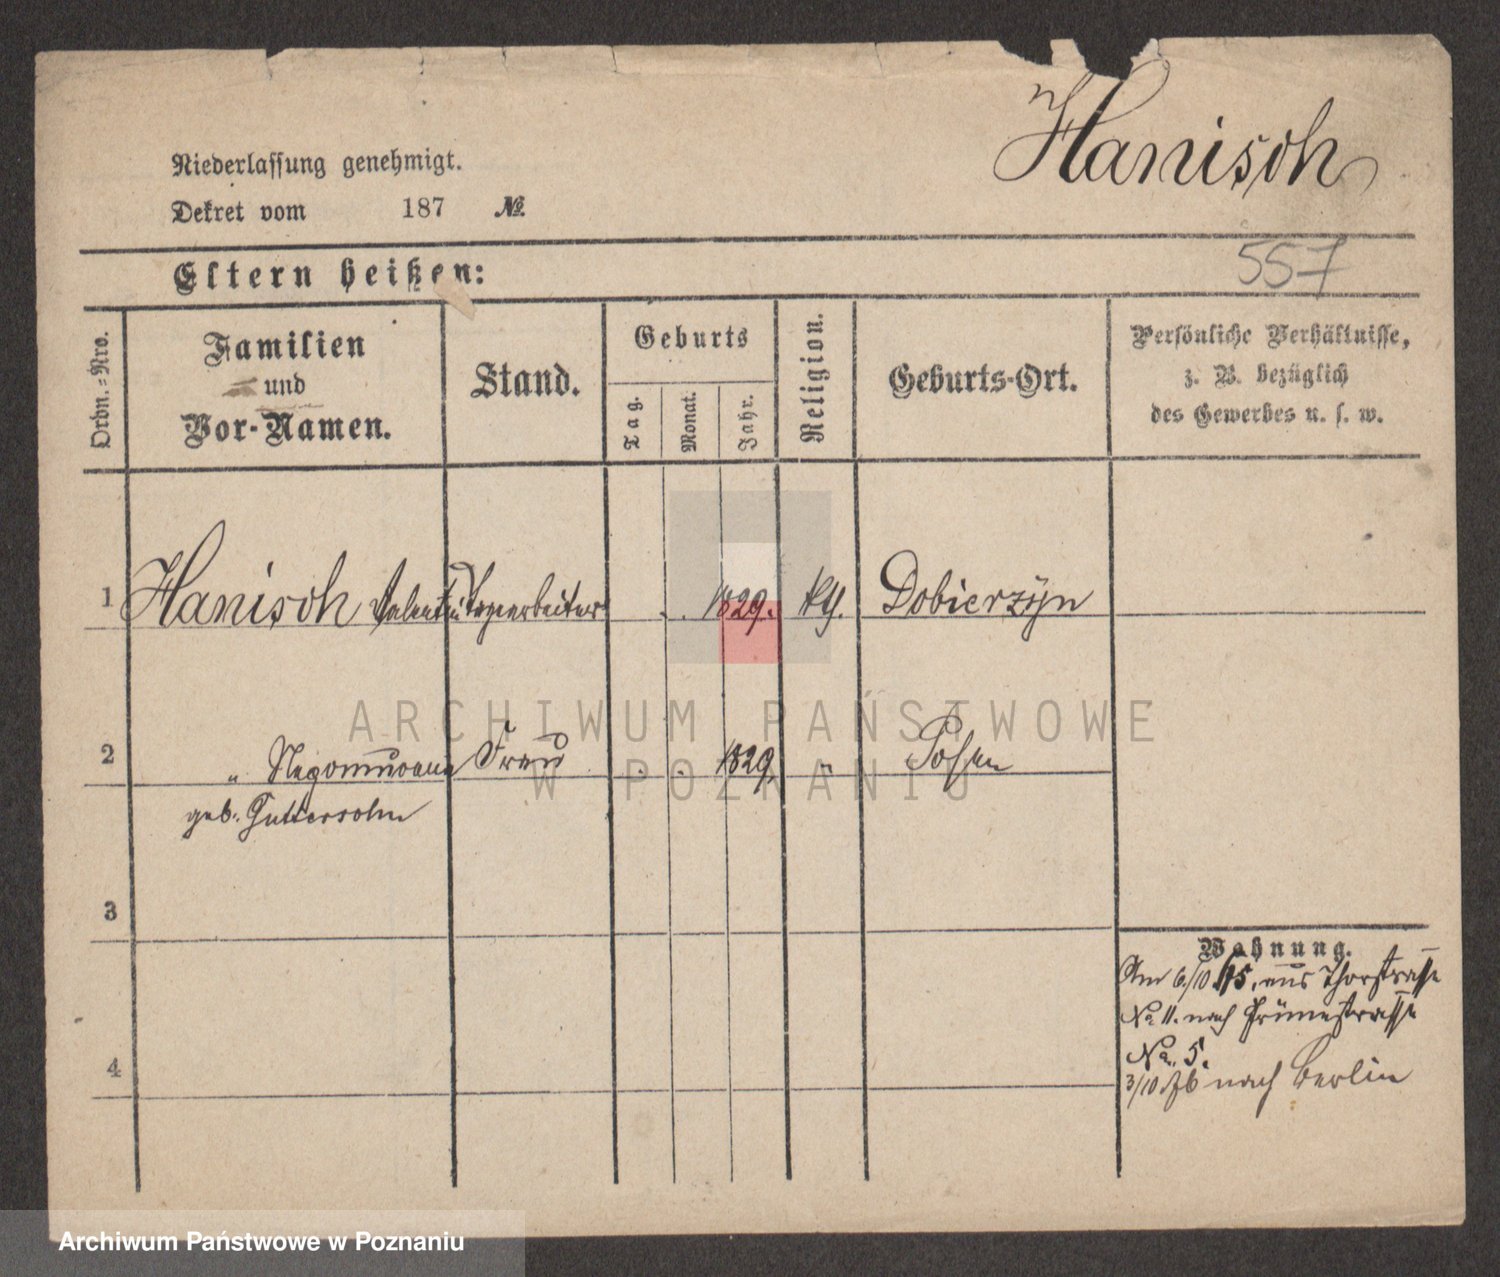 Hanisch
Niederlassung genehmigt.
Dekret vom 187 №
557
Eltern heißen:
Ordn.=Nro.
Familien
und
Vor-Namen.
Stand.
Geburts
Tag.
Monat.
Jahr.
Religion.
Geburts-Ort.
Persönliche Verhältnisse,
z. B. bezüglich
des Gewerbes u. s. w.
1 Hanisch Valentin 1829. kth. Dobierzyn
2 " Frau 1829 " Posen
geb.
3
Wohnung.
Am 6/10 75. aus Thorstrasse
No 11. nach
No. 5.
4
3/10 76 nach Berlin
ARCHIWUM PAŃSTWOWE
W POZNANIU
Archiwum Państwowe w Poznaniu